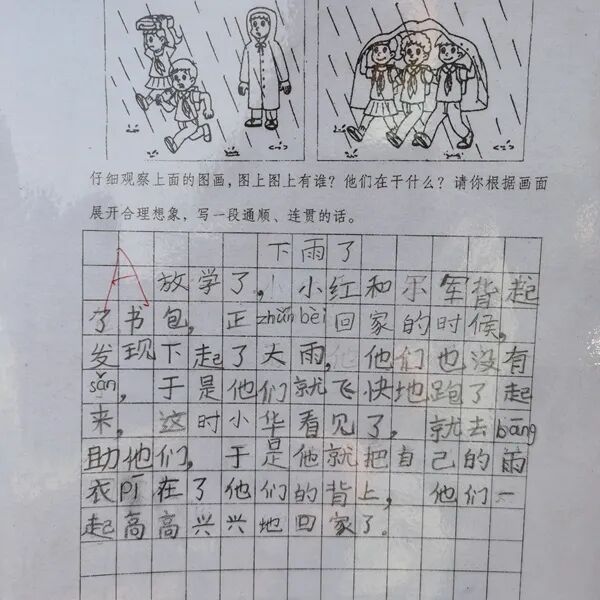 仔细观察上面的图画，图上图上有谁？他们在干什么？请你根据画面
展开合理想象，写一段通顺、连贯的话。
下雨了
A
放学了，小红和小军背起
了书包，正zhǔnbèi回家的时候，
发现下起了大雨，他们也没有
sǎn，于是他们就飞快地跑了起
来，这时小华看见了，就去bāng
助他们，于是他就把自己的雨
衣pī在了他们的背上，他们一
起高高兴兴地回家了。